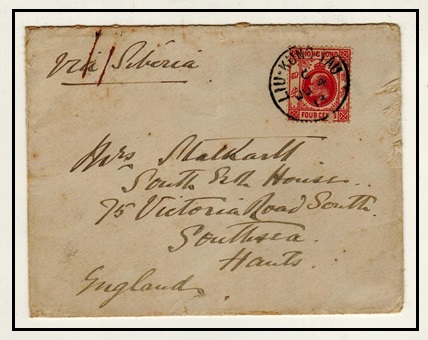 Via Siberia
LIU-KUNG-TAU
HONG KONG
FOUR CENTS
Mrs Stalkartt
South Erth House.
75 Victoria Road South.
Southsea.
Hants.
England.